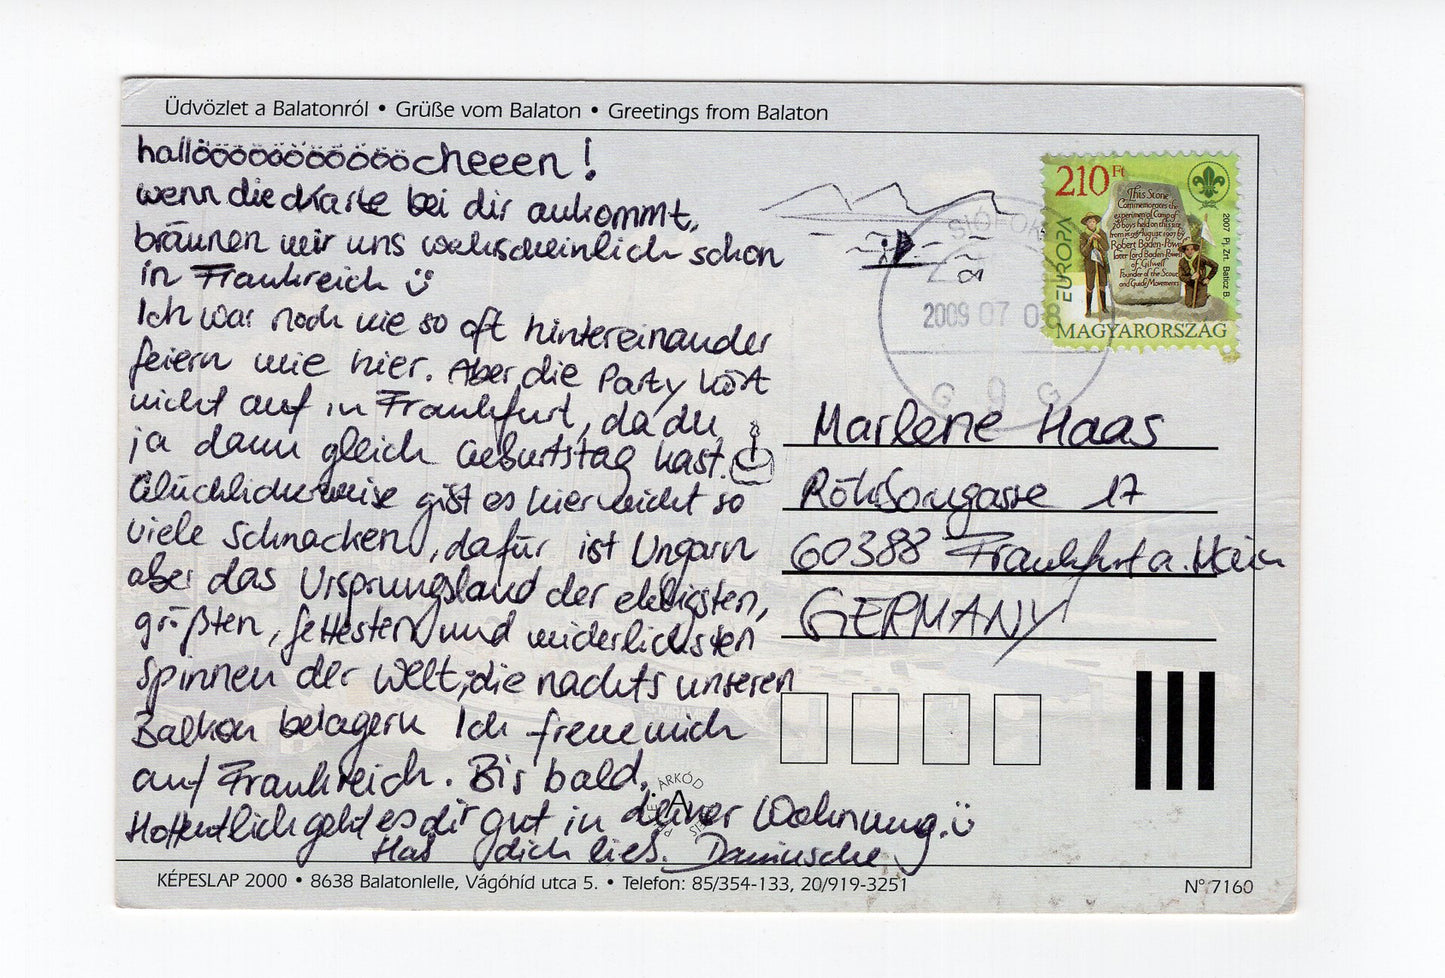 Üdvözlet a Balatonról • Grüße vom Balaton • Greetings from Balaton
hallöööööööööööcheeen!
wenn die Karte bei dir ankommt,
bräunen wir uns wahrscheinlich schon
in Frankreich
Ich war noch nie so oft hintereinander
feiern wie hier. Aber die Party hört
nicht auf in Frankfurt, da du
ja dann gleich Geburtstag hast.
Glücklicherweise gibt es hier nicht so
viele Schnacken, dafür ist Ungarn
aber das Ursprungsland der ekligsten,
größten, fettesten und widerlichsten
Spinnen der Welt, die nachts unseren
Balkon belagern. Ich freue mich
auf Frankreich. Bis bald.
Hoffentlich geht es dir gut in deiner Wohnung.
Hab dich lieb.
210 Ft
This Stone
Commemorates the
experimental Camp of
20 boys held on this site
from 1st-9th August 1907 by
Robert Baden-Powell
later Lord Baden-Powell
of Gilwell
Founder of the Scout
and Guide Movements
EUROPA
2007 Pj. Zrt. Baticz B.
MAGYARORSZÁG
SIÓFOK
2009 07 08
Marlene Haas
17
60388 Frankfurt a. Main
GERMANY
ÁRKÓD
KÉPESLAP 2000 • 8638 Balatonlelle, Vágóhíd utca 5. • Telefon: 85/354-133, 20/919-3251
N° 7160